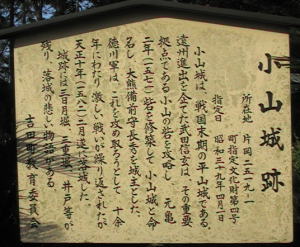 小山城跡
所在地 片岡二五一九ー一
町指定文化財第四号
指定日 昭和三十九年四月一日
小山城は、戦国末期の平山城である。
遠州進出を企てた武田信玄は、その重要
拠点である小山の砦を攻略し、元亀
二年(一五七一)砦を修築して小山城と命
名し、大熊備前守長秀を城主とした。
徳川軍は、これを攻め取ろうとして、十余
年にわたり激しい戦いが繰り返されたが
天正十年(一五八二)二月遂に落城した。
城跡には三日月堀、三重堀、井戸等が
残り、落城の悲しい物語がある。
吉田町教育委員会